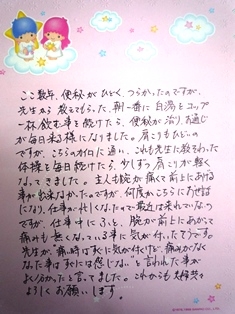 ここ数年、便秘がひどく、つらかったのですが、
先生から教えてもらった、朝一番に白湯をコップ
一杯飲む事を続けたら、便秘が治り、お通じ
が毎日来る様になりました。肩こりもひどいの
ですが、こちらのカイロに通い、これも先生に教えわった
体操を毎日続けたら、少しずつ肩こりが軽く
なってきました。主人も腕が痛くて前に上げる
事が出来なかったのですが、何度かこちらにお世話
になり、仕事が忙しくなったので最近は来れていないの
ですが、仕事中にふと、腕が前に上がって
痛みも無くなっている事に気が付いたそうです。
先生が、"痛い時はすぐに気が付くけど、痛みがなく
なった事はすぐには感じない"と言われた事が
よくわかったと言ってました。これからも夫婦共々
よろしくお願いします。